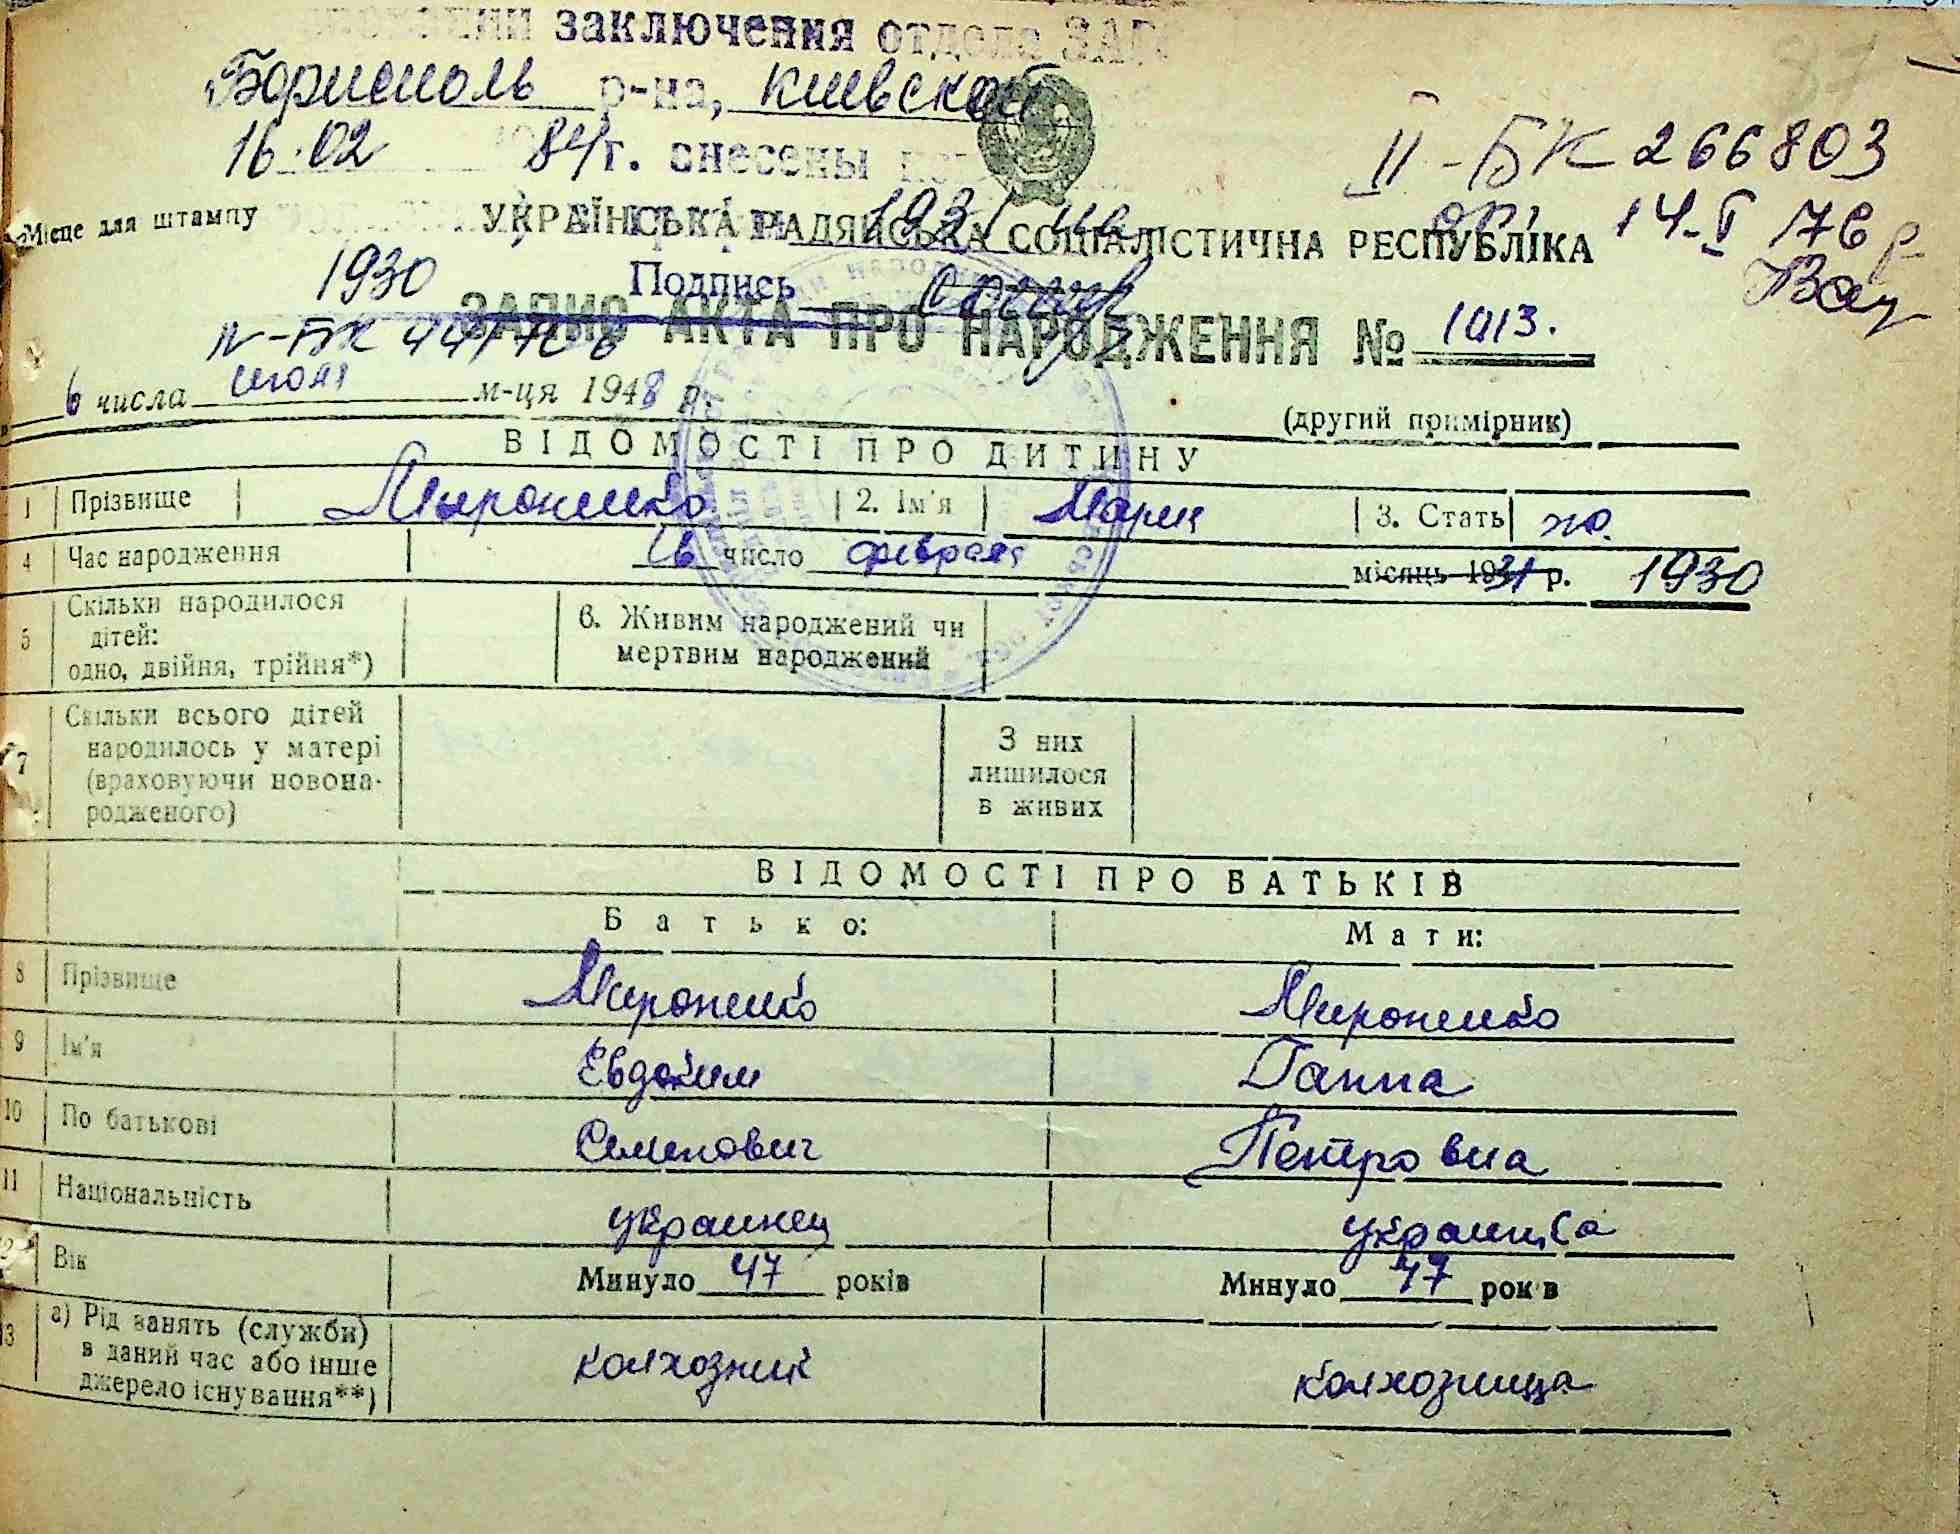 заключения отдела ЗАГС
Бориспиль р-на, Киевской
16.02 84 г. внесены
II-БК 266803
14-V 76 р
Місце для штампу
УКРАЇНСЬКА РАДЯНСЬКА СОЦІАЛІСТИЧНА РЕСПУБЛІКА
1931 на
1930 Подпись
ЗАПИС АКТА ПРО НАРОДЖЕННЯ № 1013.
IV-БК
6 числа июля м-ця 1948 р.
(другий примірник)
ВІДОМОСТІ ПРО ДИТИНУ
1 Прізвище Мироненко 2. Ім'я Мария 3. Стать жо.
4 Час народження 16 число февраля місяць 1931 р. 1930
5 Скільки народилося дітей: одно, двійня, трійня*) 6. Живим народжений чи мертвим народжений
7 Скільки всього дітей народилось у матері (враховуючи новонародженого) З них лишилося в живих
ВІДОМОСТІ ПРО БАТЬКІВ
Батько: Мати:
8 Прізвище Мироненко Мироненко
9 Ім'я Евдоким Ганна
10 По батькові Семенович Петровна
11 Національність украинец украинка
12 Вік Минуло 47 років Минуло 47 років
13 а) Рід занять (служби) в даний час або інше джерело існування**) колхозник колхозница